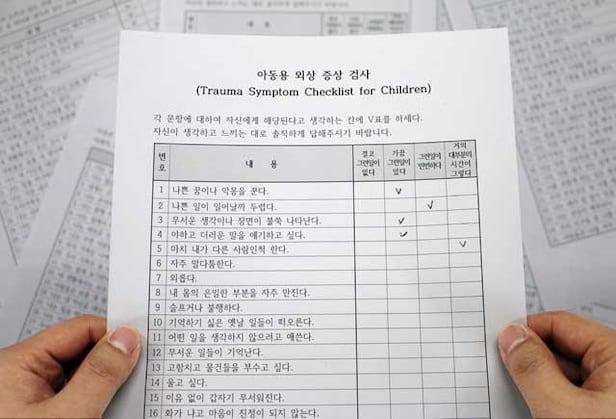 아동용 외상 증상 검사
(Trauma Symptom Checklist for Children)
각 문항에 대하여 자신에게 해당된다고 생각하는 칸에 V표를 하세다.
자신이 생각하고 느끼는 대로 솔직하게 답해주시기 바랍니다.
번호 내 용 결코 그런일이 없다 가끔 그런일이 있다 그런일이 빈번하다 거의 대부분의 시간이 그렇다
1 나쁜 꿈이나 악몽을 꾼다. V
2 나쁜 일이 일어날까 두렵다. V
3 무서운 생각이나 장면이 불쑥 나타난다. V
4 야하고 더러운 말을 얘기하고 싶다. V
5 마치 내가 다른 사람인척 한다. V
6 자주 말다툼한다.
7 외롭다.
8 내 몸의 은밀한 부분을 자주 만진다.
9 슬프거나 불행하다.
10 기억하기 싫은 옛날 일들이 떠오른다.
11 어떤 일을 생각하지 않으려고 애쓴다.
12 무서운 일들이 기억난다.
13 고함치고 물건들을 부수고 싶다.
14 울고 싶다.
15 이유 없이 갑자기 무서워진다.
16 화가 나고 마음이 진정이 되지 않는다.